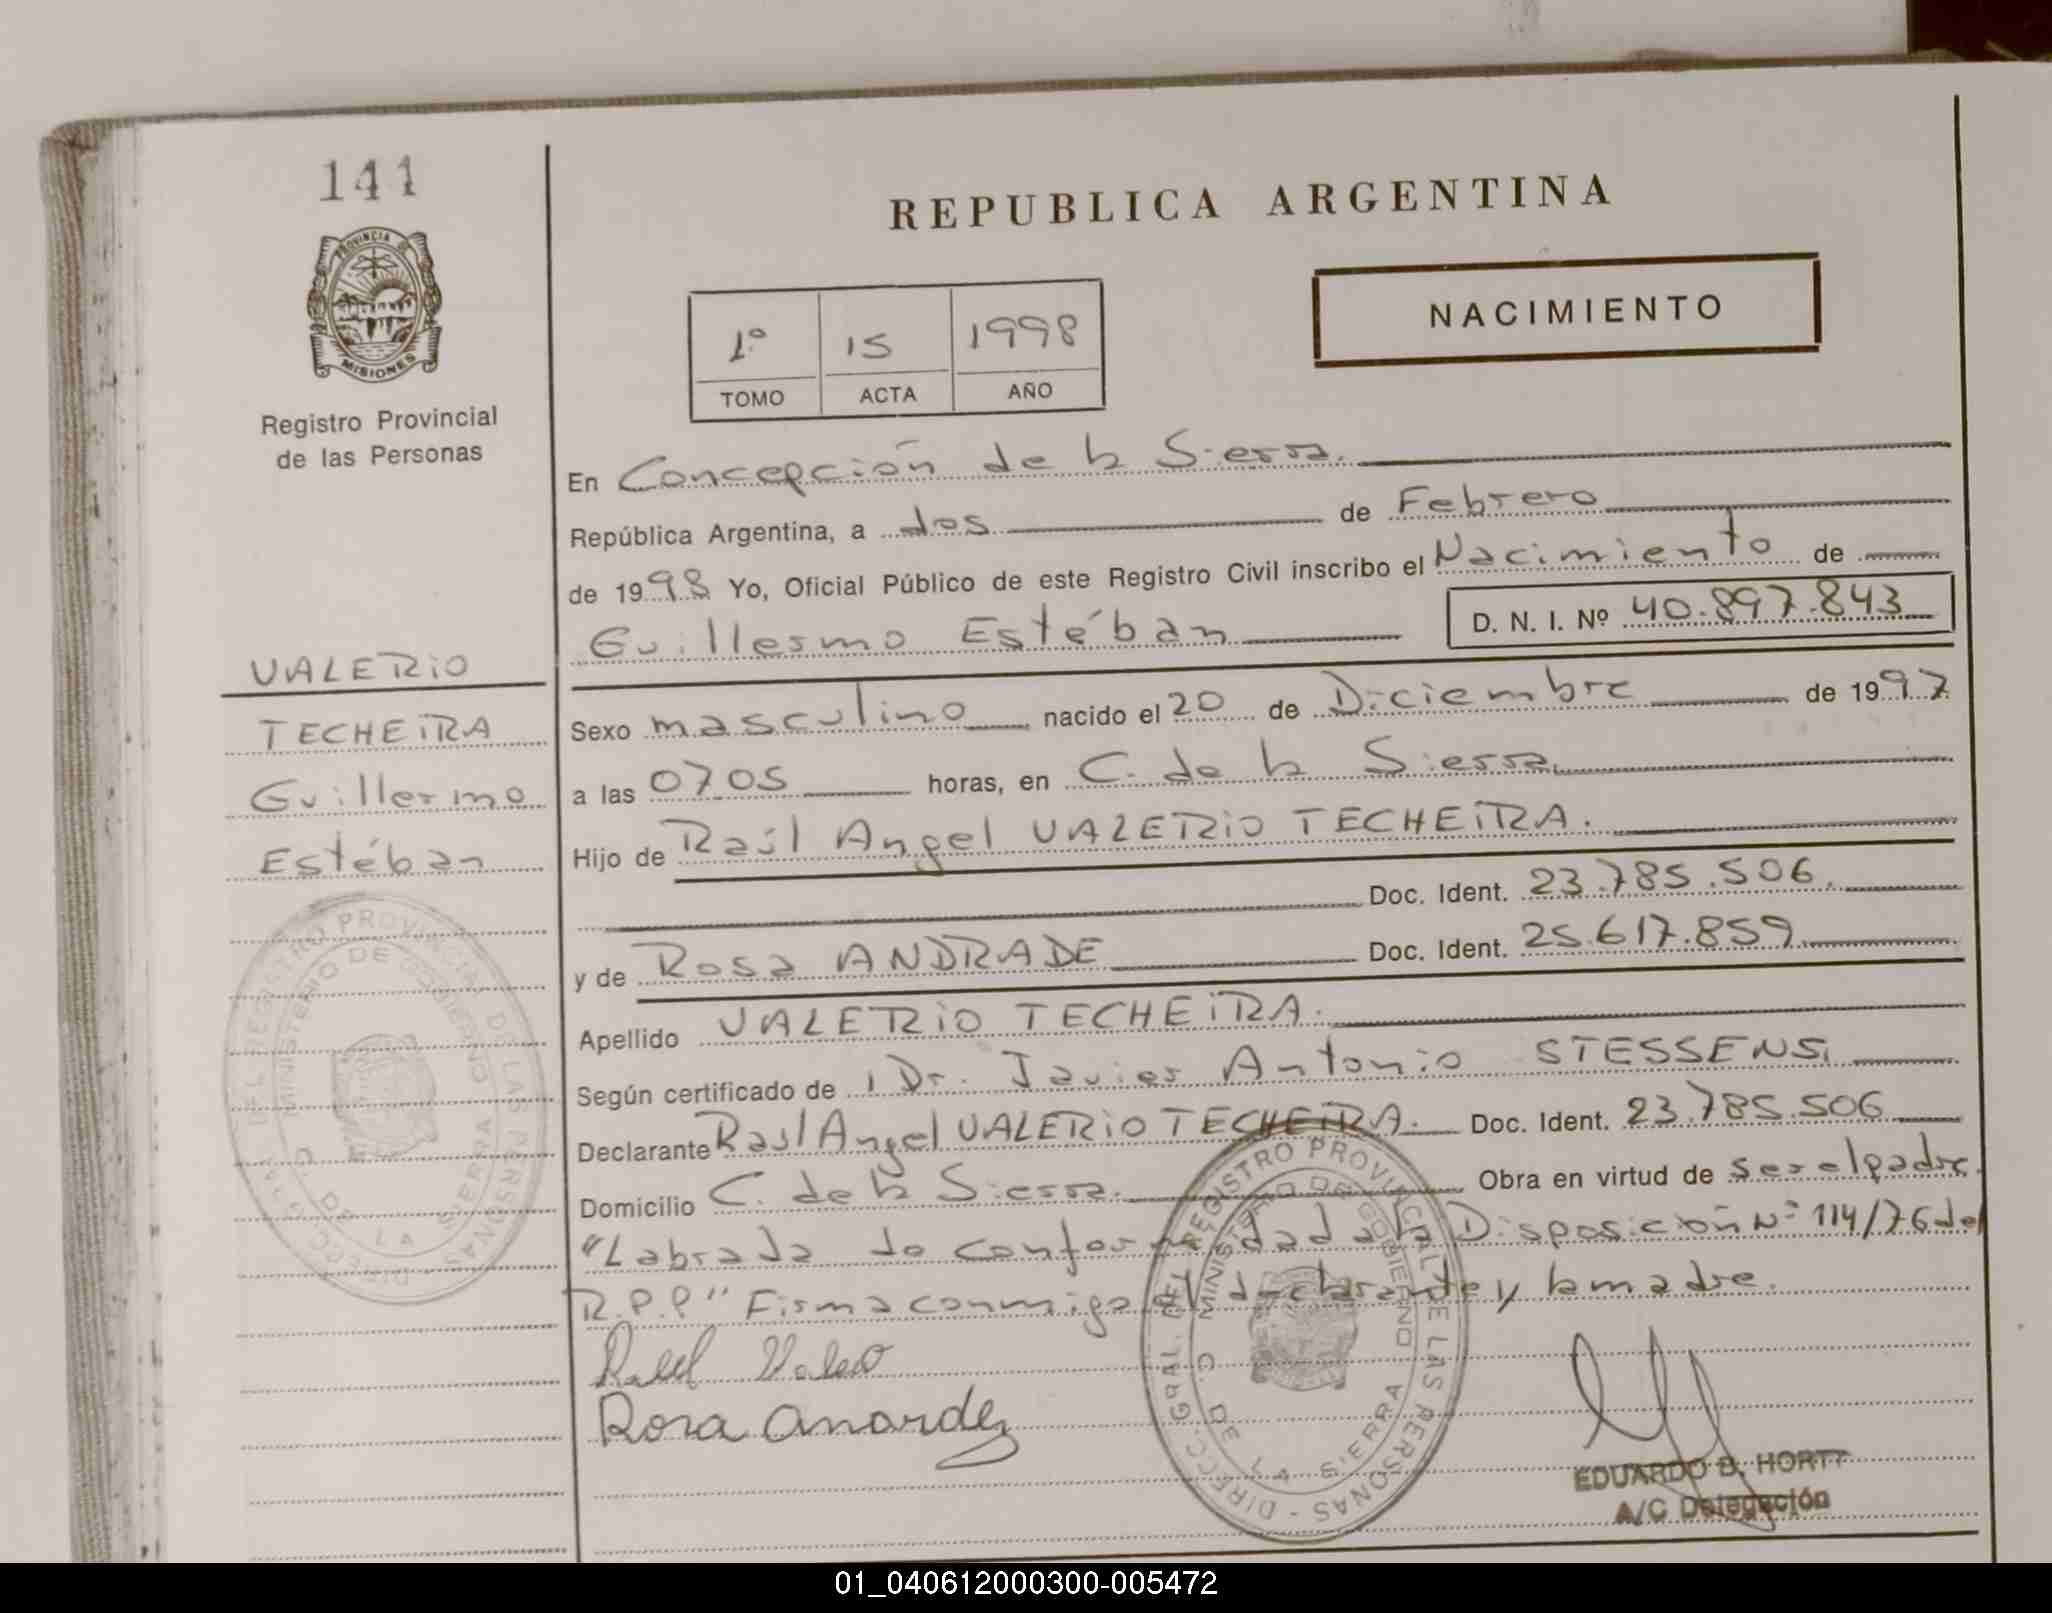 141
PROVINCIA DE
MISIONES
Registro Provincial
de las Personas
REPUBLICA ARGENTINA
NACIMIENTO
1º 15 1998
TOMO ACTA AÑO
En Concepción de la Sierra.
República Argentina, a dos de Febrero
de 1998 Yo, Oficial Público de este Registro Civil inscribo el Nacimiento de
Guillermo Estéban D. N. I. Nº 40.897.843
VALERIO
TECHEIRA
Guillermo
Estéban
Sexo masculino nacido el 20 de Diciembre de 1997
a las 0705 horas, en C. de la Sierra
Hijo de Raúl Angel VALERIO TECHEIRA.
Doc. Ident. 23.785.506.
y de Rosa ANDRADE Doc. Ident. 25.617.859
Apellido VALERIO TECHEIRA.
Según certificado de Dr. Javier Antonio STESSENS
Declarante Raúl Angel VALERIO TECHEIRA. Doc. Ident. 23.785.506
Domicilio C. de la Sierra. Obra en virtud de ser el padre.
"Labrada de conformidad a la Disposición Nº 114/76 del
R.P.P" Firma conmigo el declarante y la madre.
Raul Valerio
Rosa
DIRECC. GRAL. DEL REGISTRO PROVINCIAL DE LAS PERSONAS
MINISTERIO DE GOBIERNO
C. DE LA SIERRA
DIRECC. GRAL. DEL REGISTRO PROVINCIAL DE LAS PERSONAS
MINISTERIO DE GOBIERNO
C. DE LA SIERRA
EDUARDO B. HORTT
A/C Delegación
01_040612000300-005472